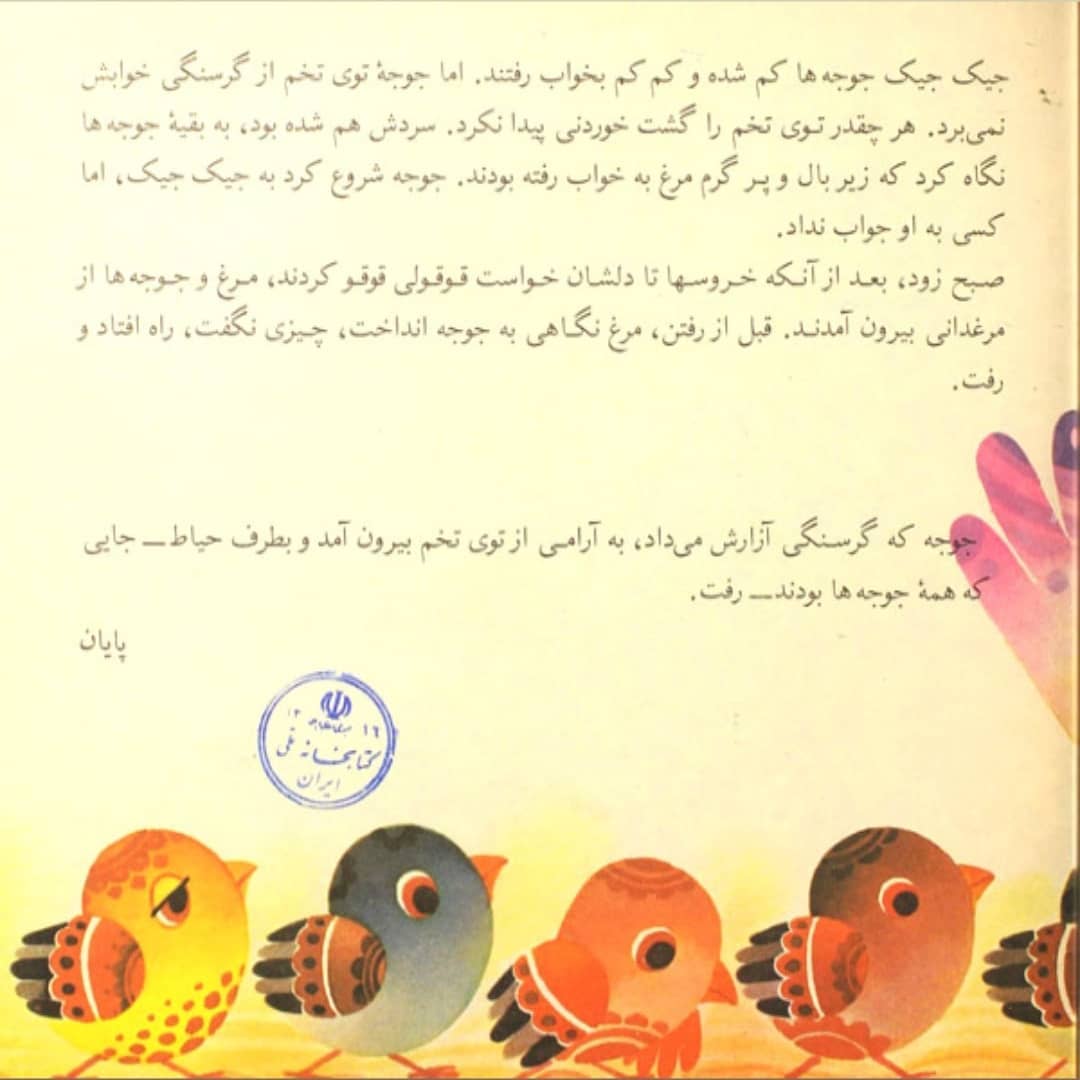 جیک جیک جوجه‌ها کم شده و کم کم بخواب رفتند. اما جوجهٔ توی تخم از گرسنگی خوابش
نمی‌برد. هر چقدر توی تخم را گشت خوردنی پیدا نکرد. سردش هم شده بود، به بقیهٔ جوجه‌ها
نگاه کرد که زیر بال و پر گرم مرغ به خواب رفته بودند. جوجه شروع کرد به جیک جیک، اما
کسی به او جواب نداد.
صبح زود، بعد از آنکه خروسها تا دلشان خواست قوقولی قوقو کردند، مرغ و جوجه‌ها از
مرغدانی بیرون آمدند. قبل از رفتن، مرغ نگاهی به جوجه انداخت، چیزی نگفت، راه افتاد و
رفت.
جوجه که گرسنگی آزارش می‌داد، به آرامی از توی تخم بیرون آمد و بطرف حیاطــ جایی
که همهٔ جوجه‌ها بودندــ رفت.
پایان
۱۳ ۱۶
کتابخانه ملی
ایران